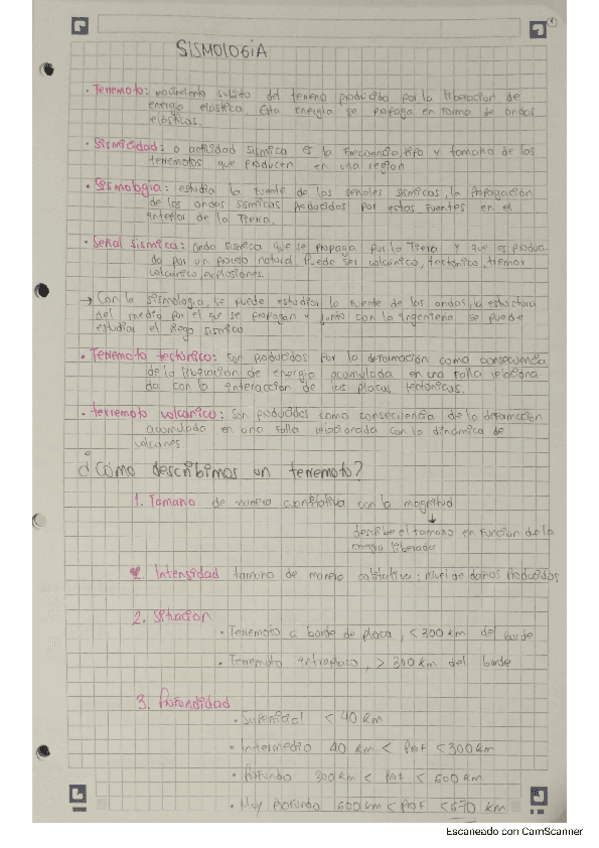 SISMOLOGIA
• Terremoto: movimiento súbito del terreno producido por la liberacion de
energia elástica. Esta energia se propaga en forma de ondas
elásticas.
• Sismicidad: o actividad sismica es la frecuencia, tipo y tamaño de los
terremotos que producen en una region
• Sismologia: estudia la fuente de las señales sismicas, la propagacion
de las ondas sismicas producidas por estas fuentes en el
interior de la Tierra.
• Señal sismica: onda sismica que se propaga por la Tierra y que es produci
da por un proceso natural. Puede ser volcánico, tectónico, tremor
volcánico, explosiones.
→ Con la sismologia, se puede estudiar la fuente de las ondas, la estructura
del medio por el que se propagan y junto con la ingenieria se puede
estudiar el riesgo sismico
• Terremoto tectónico: son producidos por la deformación como consecuencia
de la liberación de energia acumulada en una falla relaciona
da con la interaccion de las placas tectonicas.
• terremoto volcánico: son producidos como consecuencia de la deformacion
acumulada en una falla relacionada con la dinámica de
volcanes
¿Cómo describimos un terremoto?
1. Tamaño de manera cuantitativa con la magnitud
↓
describe el tamaño en funcion de la
energia liberada
Intensidad tamaño de manera cualitativa: nivel de daños producidos
2. Situacion
• Terremoto a borde de placa, < 300 km del borde
• Terremoto intraplaca, > 300 km del borde
3. Profundidad
• Superficial < 40 km
• Intermedio 40 km < Prof < 300 km
• Profundo 300 km < Prof < 600 km
• Muy profundo 600 km < Prof < 670 km
Escaneado con CamScanner